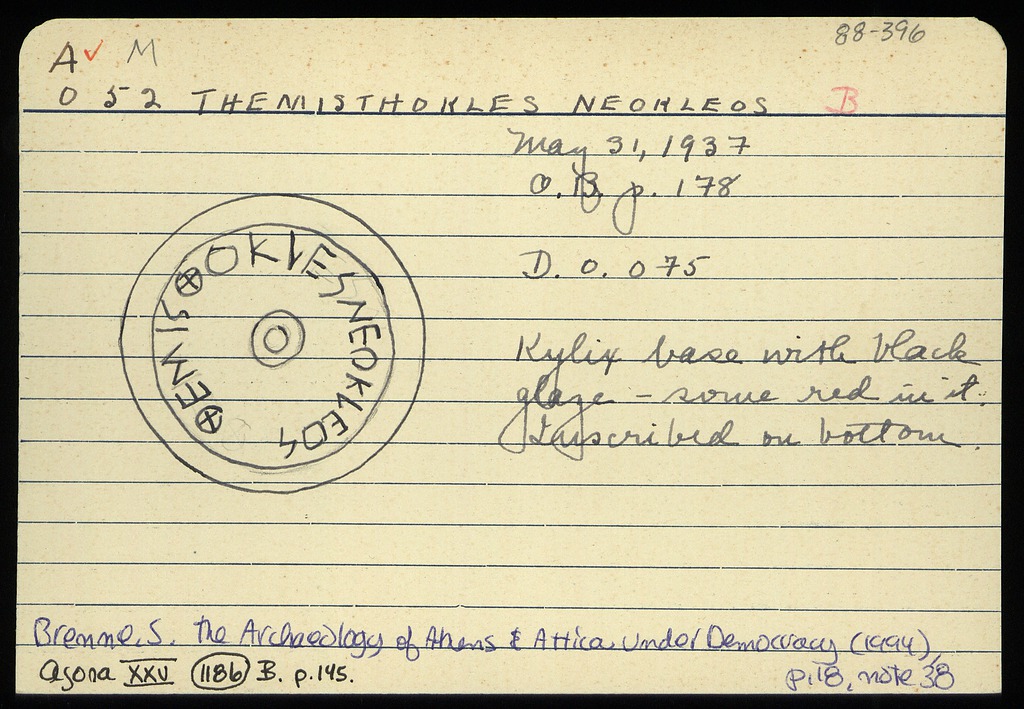 88-396
A✓ M
O 52 THEMISTHOKLES NEOKLEOS B
May 31, 1937
O.B. p. 178
D. O. 075
⊕EMIS⊕OKLESNEOKLEOS
Kylix base with black
glaze - some red in it.
Inscribed on bottom
Brenne, S. The Archaeology of Athens & Attica Under Democracy (1994),
p.18, note 38
Agora XXV 1186 B. p.145.